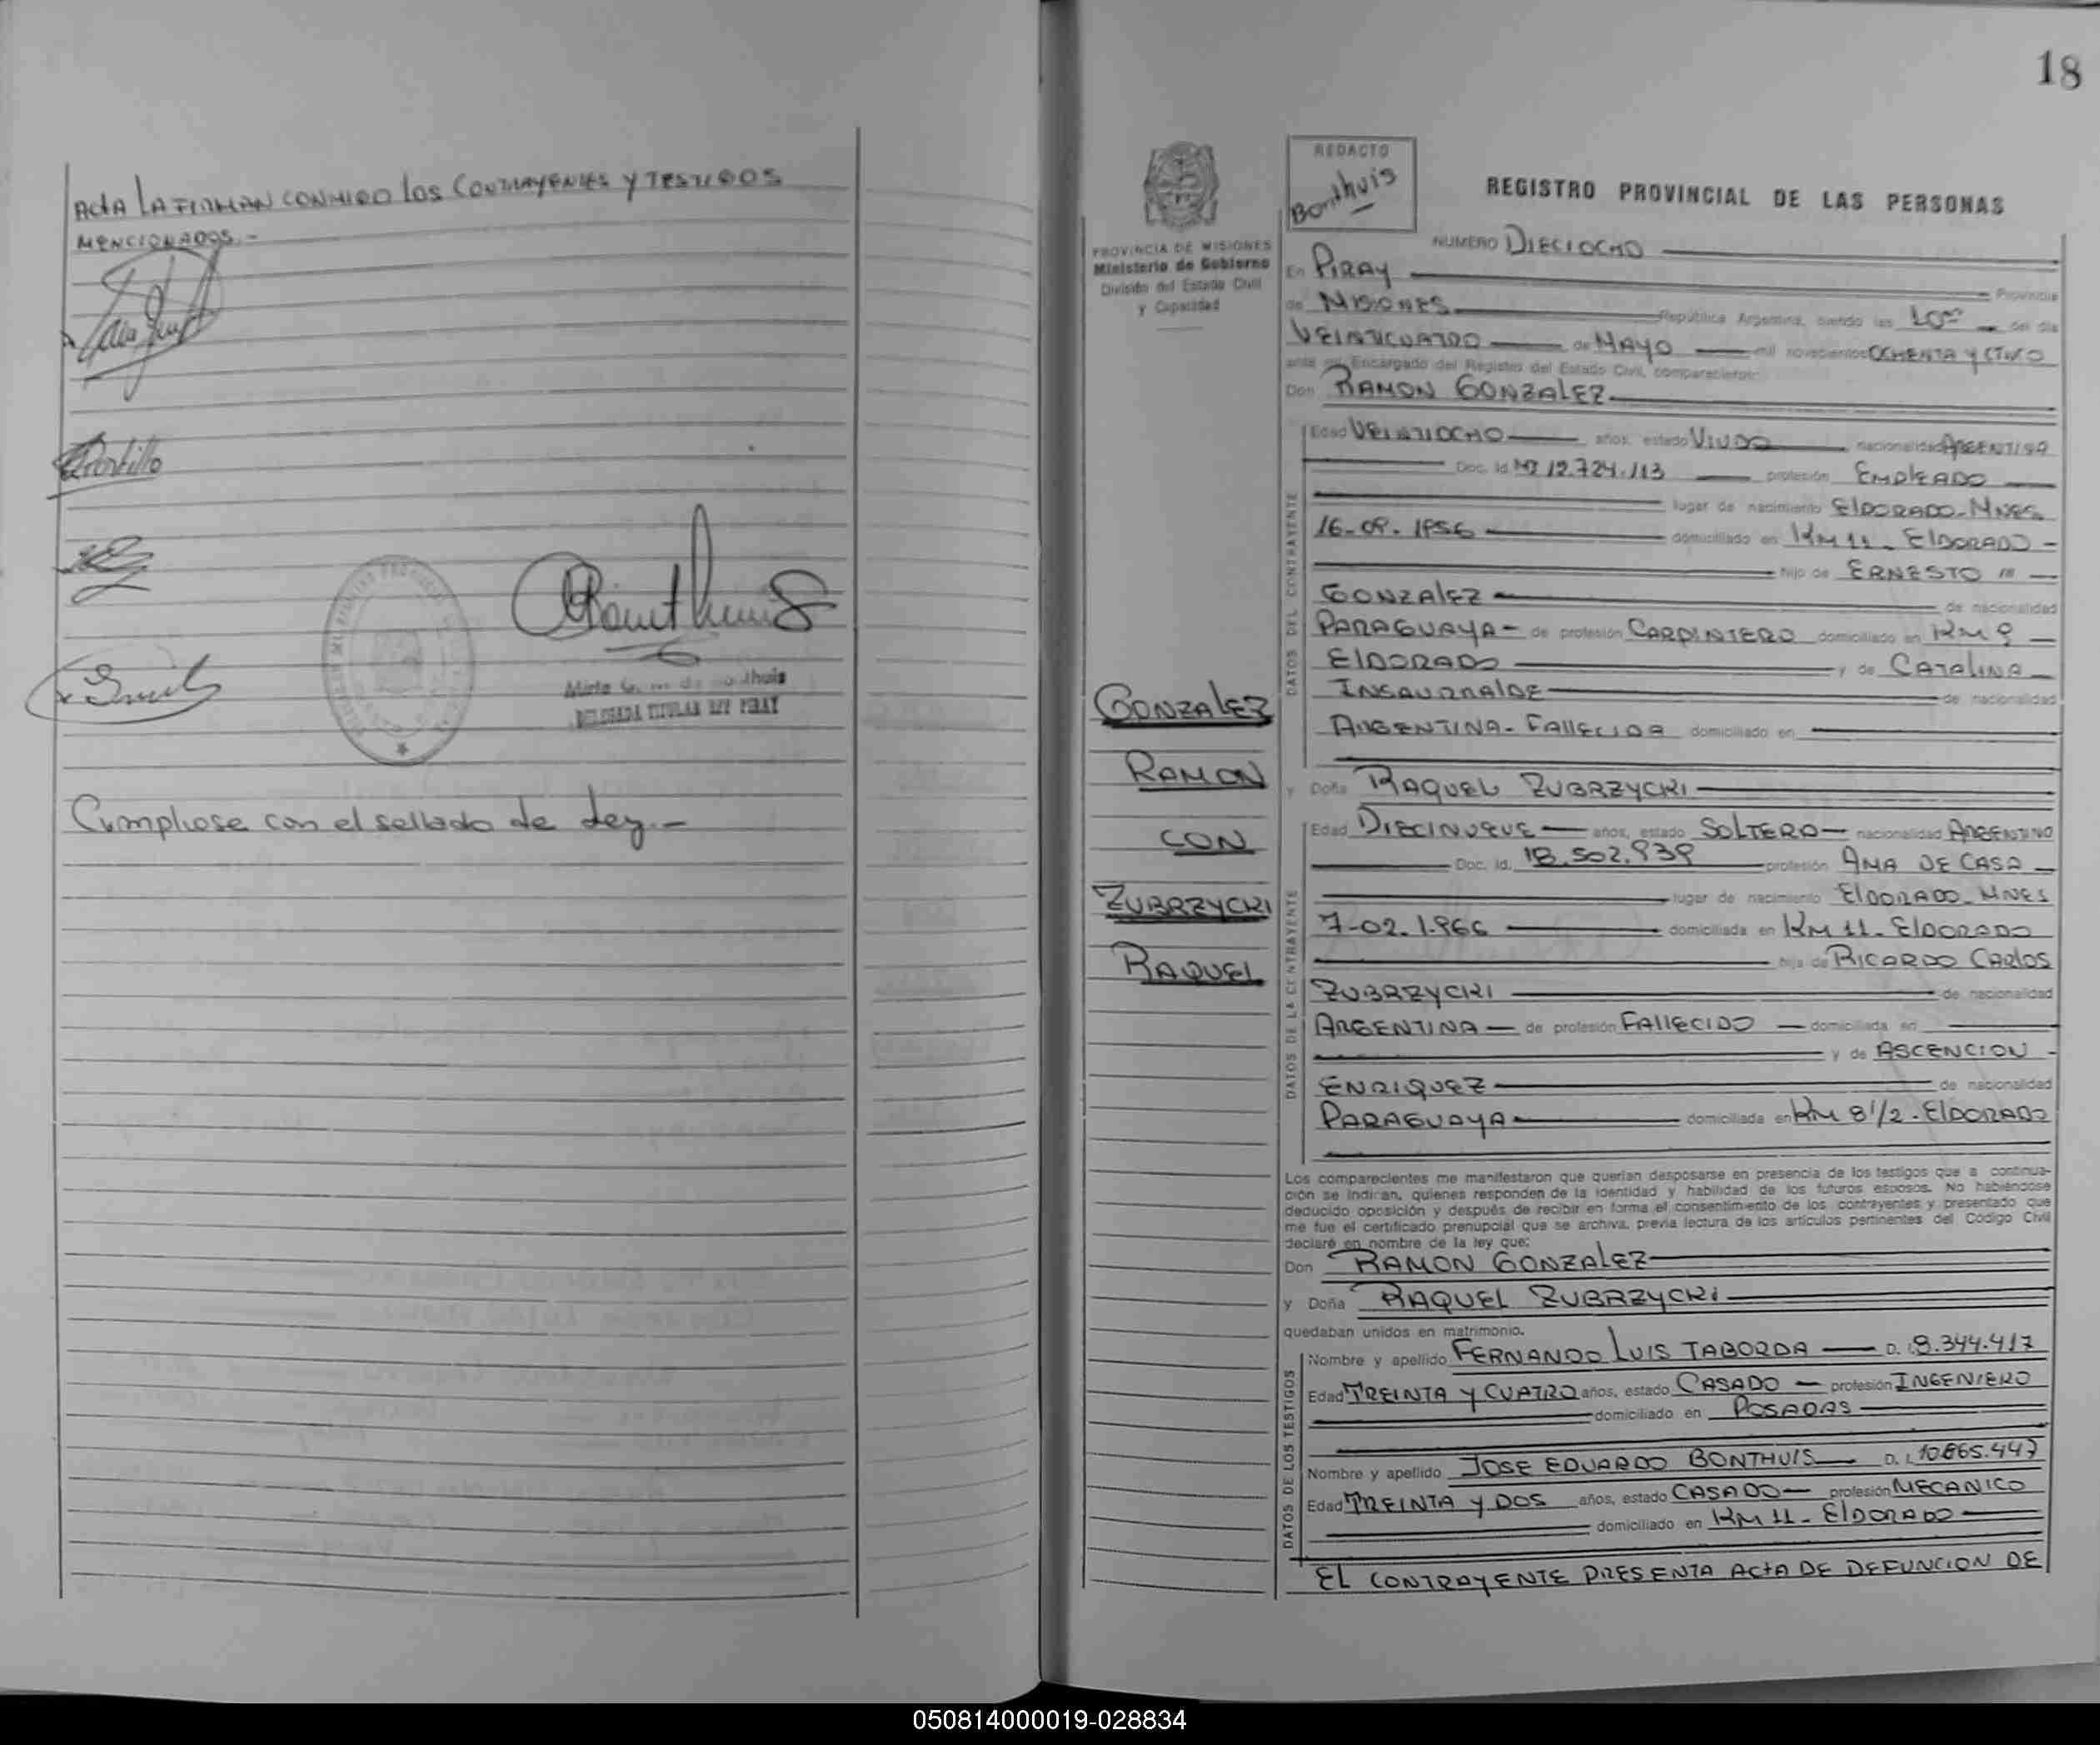 ACTA LA FIRMAN CONMIGO LOS CONTRAYENTES Y TESTIGOS
MENCIONADOS.-
Portillo
Bonthuis
DELEGADA TITULAR PIRAY
Cumpliose con el sellado de Ley.-
18
REDACTO
Bonthuis
PROVINCIA DE MISIONES
Ministerio de Gobierno
División del Estado Civil
y Capacidad
GONZALEZ
RAMON
CON
ZUBRZYCKI
RAQUEL
REGISTRO PROVINCIAL DE LAS PERSONAS
NUMERO DIECIOCHO
En PIRAY Provincia
de MISIONES República Argentina, siendo las 10 del día
VEINTICUATRO de MAYO mil novecientos OCHENTA Y CINCO
ante mí, Encargado del Registro del Estado Civil, comparecieron:
Don RAMON GONZALEZ
DATOS DEL CONTRAYENTE
Edad VEINTIOCHO años, estado VIUDO nacionalidad ARGENTINA
Doc. Id. MI 12.724.113 profesión EMPLEADO
lugar de nacimiento ELDORADO-MNES
16-09-1956 domiciliado en KM 11- ELDORADO-
hijo de ERNESTO
GONZALEZ de nacionalidad
PARAGUAYA- de profesión CARPINTERO domiciliado en KM 9
ELDORADO y de CATALINA
INSAURRALDE de nacionalidad
ARGENTINA- FALLECIDA domiciliado en
y Doña RAQUEL ZUBRZYCKI
DATOS DE LA CONTRAYENTE
Edad DIECINUEVE años, estado SOLTERA nacionalidad ARGENTINO
Doc. Id. 18.502.939 profesión AMA DE CASA
lugar de nacimiento ELDORADO-MNES
7-02-1.966 domiciliada en KM 11- ELDORADO
hija de RICARDO CARLOS
ZUBRZYCKI de nacionalidad
ARGENTINA de profesión FALLECIDO domiciliada en
y de ASCENCION
ENRIQUEZ de nacionalidad
PARAGUAYA domiciliada en KM 8 1/2 - ELDORADO
Los comparecientes me manifestaron que querían desposarse en presencia de los testigos que a continua-
ción se indican, quienes responden de la identidad y habilidad de los futuros esposos. No habiéndose
deducido oposición y después de recibir en forma el consentimiento de los contrayentes y presentado que
me fue el certificado prenupcial que se archiva, previa lectura de los artículos pertinentes del Código Civil
declaré en nombre de la ley que:
Don RAMON GONZALEZ
y Doña RAQUEL ZUBRZYCKI
quedaban unidos en matrimonio.
DATOS DE LOS TESTIGOS
Nombre y apellido FERNANDO LUIS TABORDA D. I. 8.344.417
Edad TREINTA Y CUATRO años, estado CASADO profesión INGENIERO
domiciliado en POSADAS
Nombre y apellido JOSE EDUARDO BONTHUIS D. I. 10.865.447
Edad TREINTA Y DOS años, estado CASADO profesión MECANICO
domiciliado en KM 11- ELDORADO
EL CONTRAYENTE PRESENTA ACTA DE DEFUNCION DE
050814000019-028834